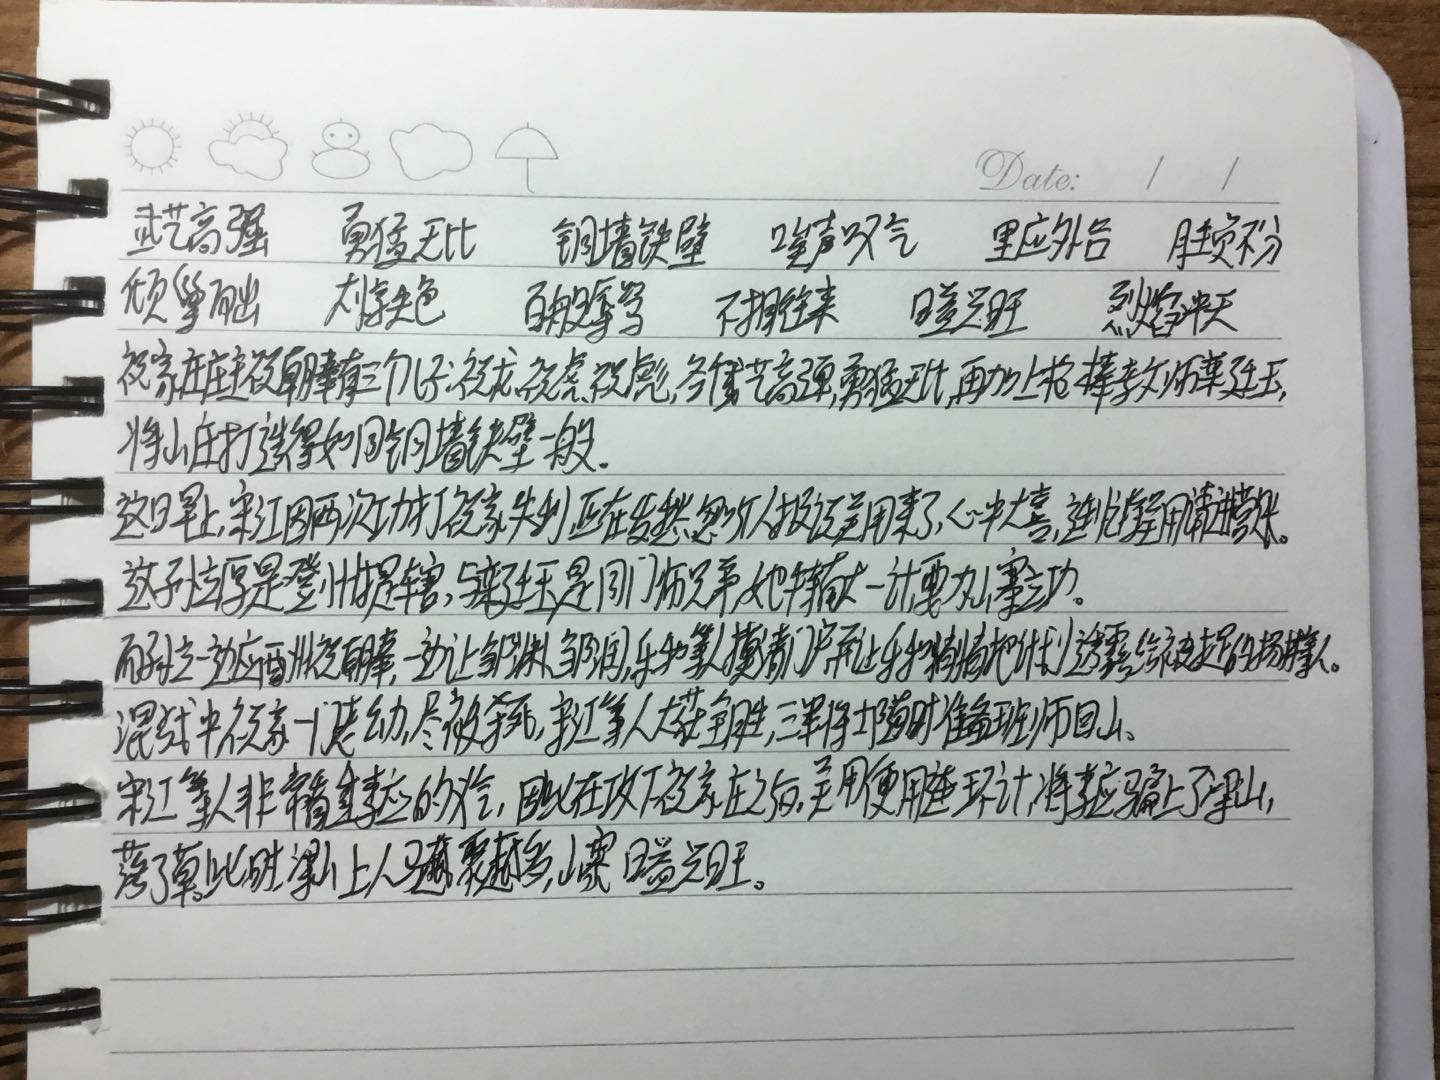 Date: / /
武艺高强 勇猛无比 铜墙铁壁 唉声叹气 里应外合 胜负不分
倾巢而出 大惊失色 百般辱骂 不相往来 日益兴旺 烈焰冲天
祝家庄庄主祝朝奉有三个儿子:祝龙、祝虎、祝彪,各个武艺高强,勇猛无比,再加上枪棒教师栾廷玉,
将山庄打造得如同铜墙铁壁一般。
这日早上,宋江因两次攻打祝家失利,正在发愁,忽然有人报说吴用来了,心中大喜,连忙将吴用请进营帐。
这孙立原是登州提辖,与栾廷玉是同门师兄弟,他特献一计,要为山寨立功。
而孙立一边应酬祝朝奉,一边让邹渊、邹润、乐和等人摸清门户,再让乐和悄悄地把计划透露给被捉的杨林等人。
混战中祝家一门老幼,尽被杀死,宋江等人大获全胜,三军将士随时准备班师回山。
宋江等人非常看重李应的义气,因此在攻下祝家庄之后,吴用便用连环计,将李应骗上了梁山,
落了草。此时梁山上人马越聚越多,山寨日益兴旺。